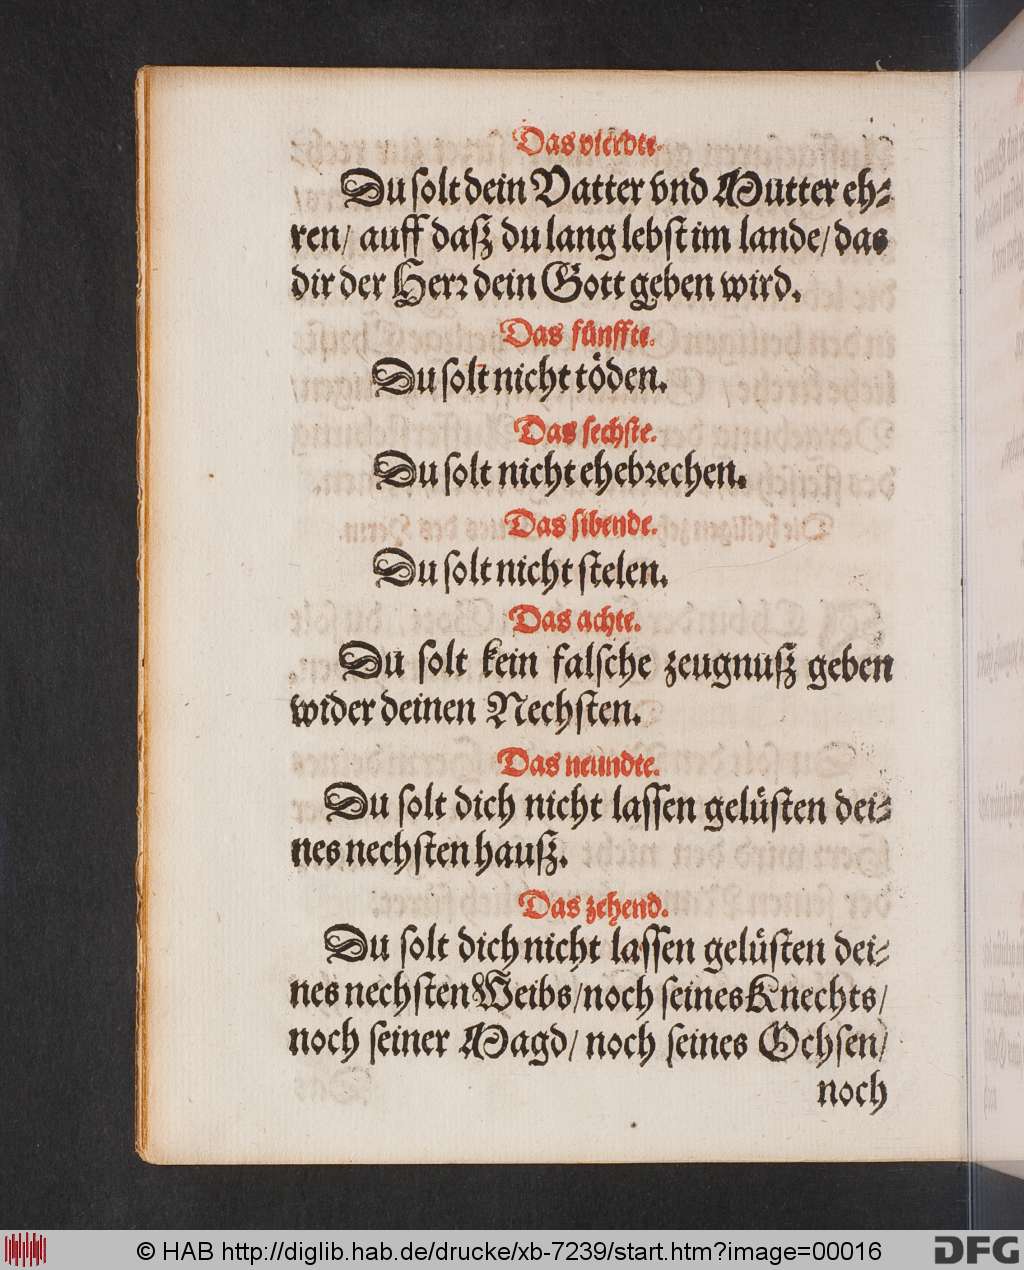 Das vierdte.
Du solt dein Vatter vnd Mutter eh⸗
ren/ auff dasz du lang lebst im lande/ das
dir der Herr dein Gott geben wird.
Das fünffte.
Du solt nicht töden.
Das sechste.
Du solt nicht ehebrechen.
Das sibende.
Du solt nicht stelen.
Das achte.
Du solt kein falsche zeugnusz geben
wider deinen Nechsten.
Das neundte.
Du solt dich nicht lassen gelüsten dei⸗
nes nechsten hausz.
Das zehend.
Du solt dich nicht lassen gelüsten dei⸗
nes nechsten Weibs/ noch seines Knechts/
noch seiner Magd/ noch seines Ochsen/
noch
© HAB http://diglib.hab.de/drucke/xb-7239/start.htm?image=00016
DFG